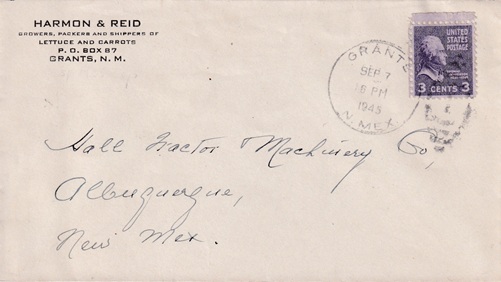 HARMON & REID
GROWERS, PACKERS AND SHIPPERS OF
LETTUCE AND CARROTS
P. O. BOX 87
GRANTS, N. M.
GRANTS
SEP 7
6 PM
1945
N. MEX.
UNITED
STATES
POSTAGE
3 CENTS 3
Hall Tractor Machinery Co,
Albuquerque,
New Mex.